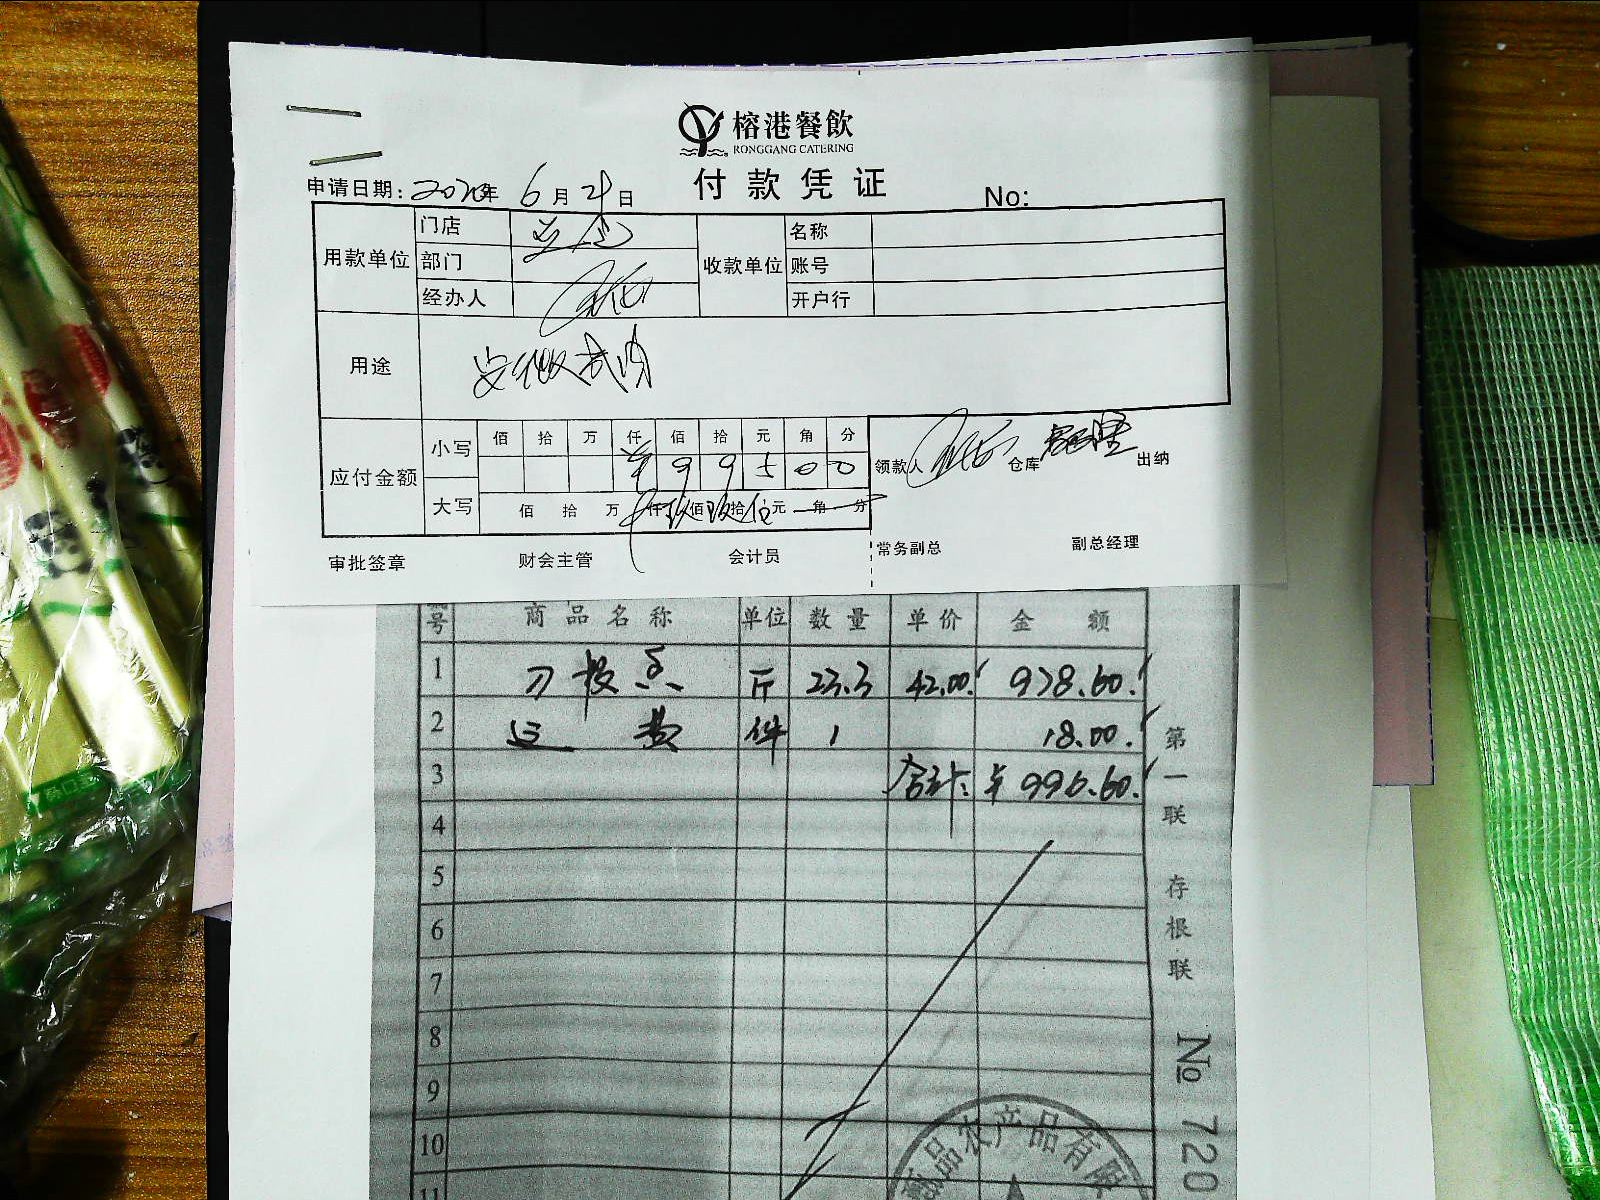 榕港餐飲
RONGGANG CATERING
付款凭证
申请日期: 年 6月 日
No:
用款单位 门店 收款单位 名称
部门 账号
经办人 开户行
用途 安徽
应付金额 小写 佰 拾 万 仟 佰 拾 元 角 分
¥ 9 9 5 0 0
领款人 仓库 出纳
大写 佰 拾 万 仟 玖 佰 玖 拾 伍 元 角 分
审批签章 财会主管 会计员 常务副总 副总经理
号 商品名称 单位 数量 单价 金额
1 刀板 斤 23.3 42.00 978.60
2 运费 件 1 18.00
3 合计: ¥ 996.60
4
5
6
7
8
9
10
11
第一联 存根联
No 720
品农产品有限